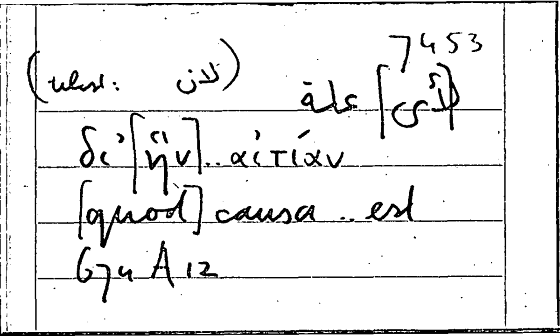 7453
(لان :اصله) علة [لأى]
δι' [ἣν].. αἰτίαν
[quod] causa .. est
674 A 12